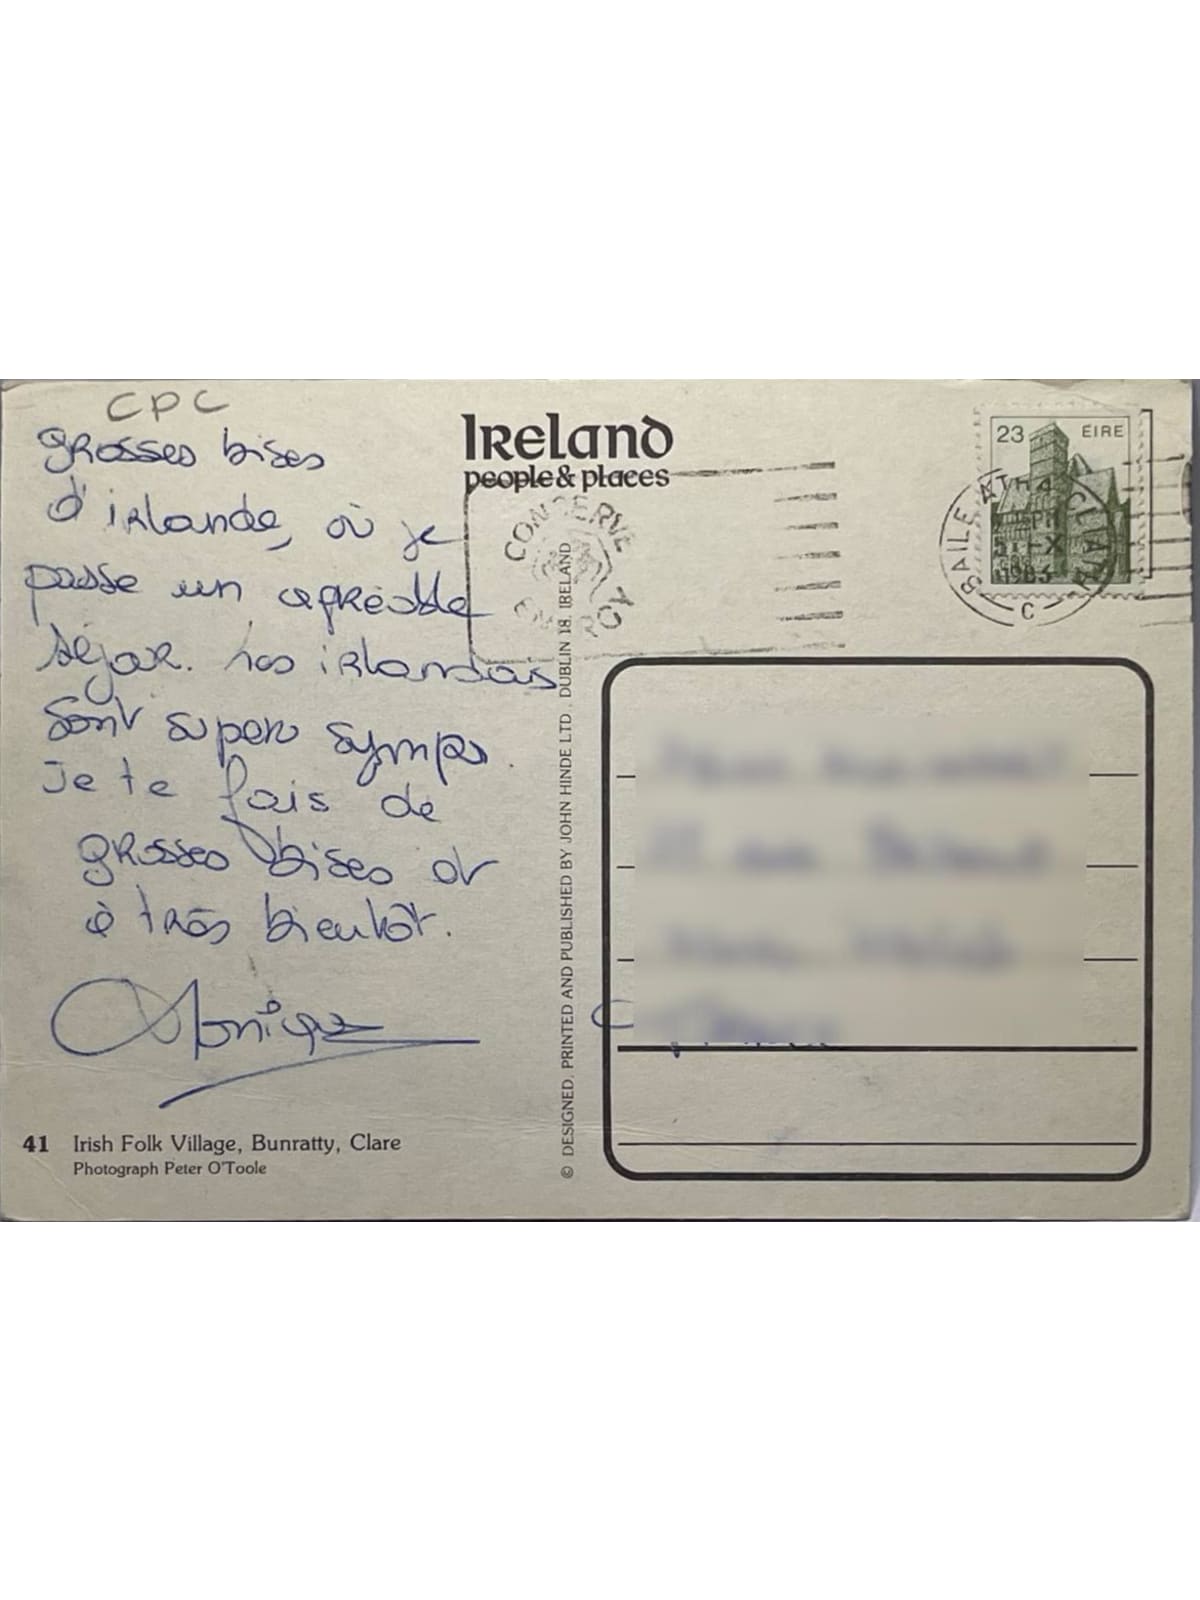 CPC
grosses bises
d'irlande, où je
passe un agréable
séjour. Les irlandais
sont super sympa.
Je te fais de
grosses bises et
à très bientôt.
Monique
41 Irish Folk Village, Bunratty, Clare
Photograph Peter O'Toole
IRELAND
people & places
CONSERVE
© DESIGNED, PRINTED AND PUBLISHED BY JOHN HINDE LTD., DUBLIN 18, IRELAND
23 EIRE
BAILE ÁTHA CLIATH
C